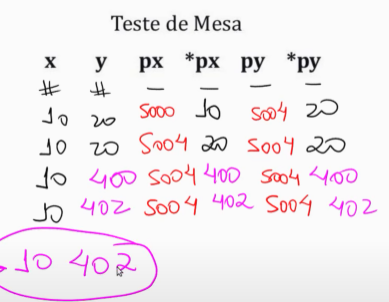 Teste de Mesa
x y px *px py *py
# # — — — —
10 20 5000 10 5004 20
10 20 5004 20 5004 20
10 400 5004 400 5004 400
10 402 5004 402 5004 402
10 402